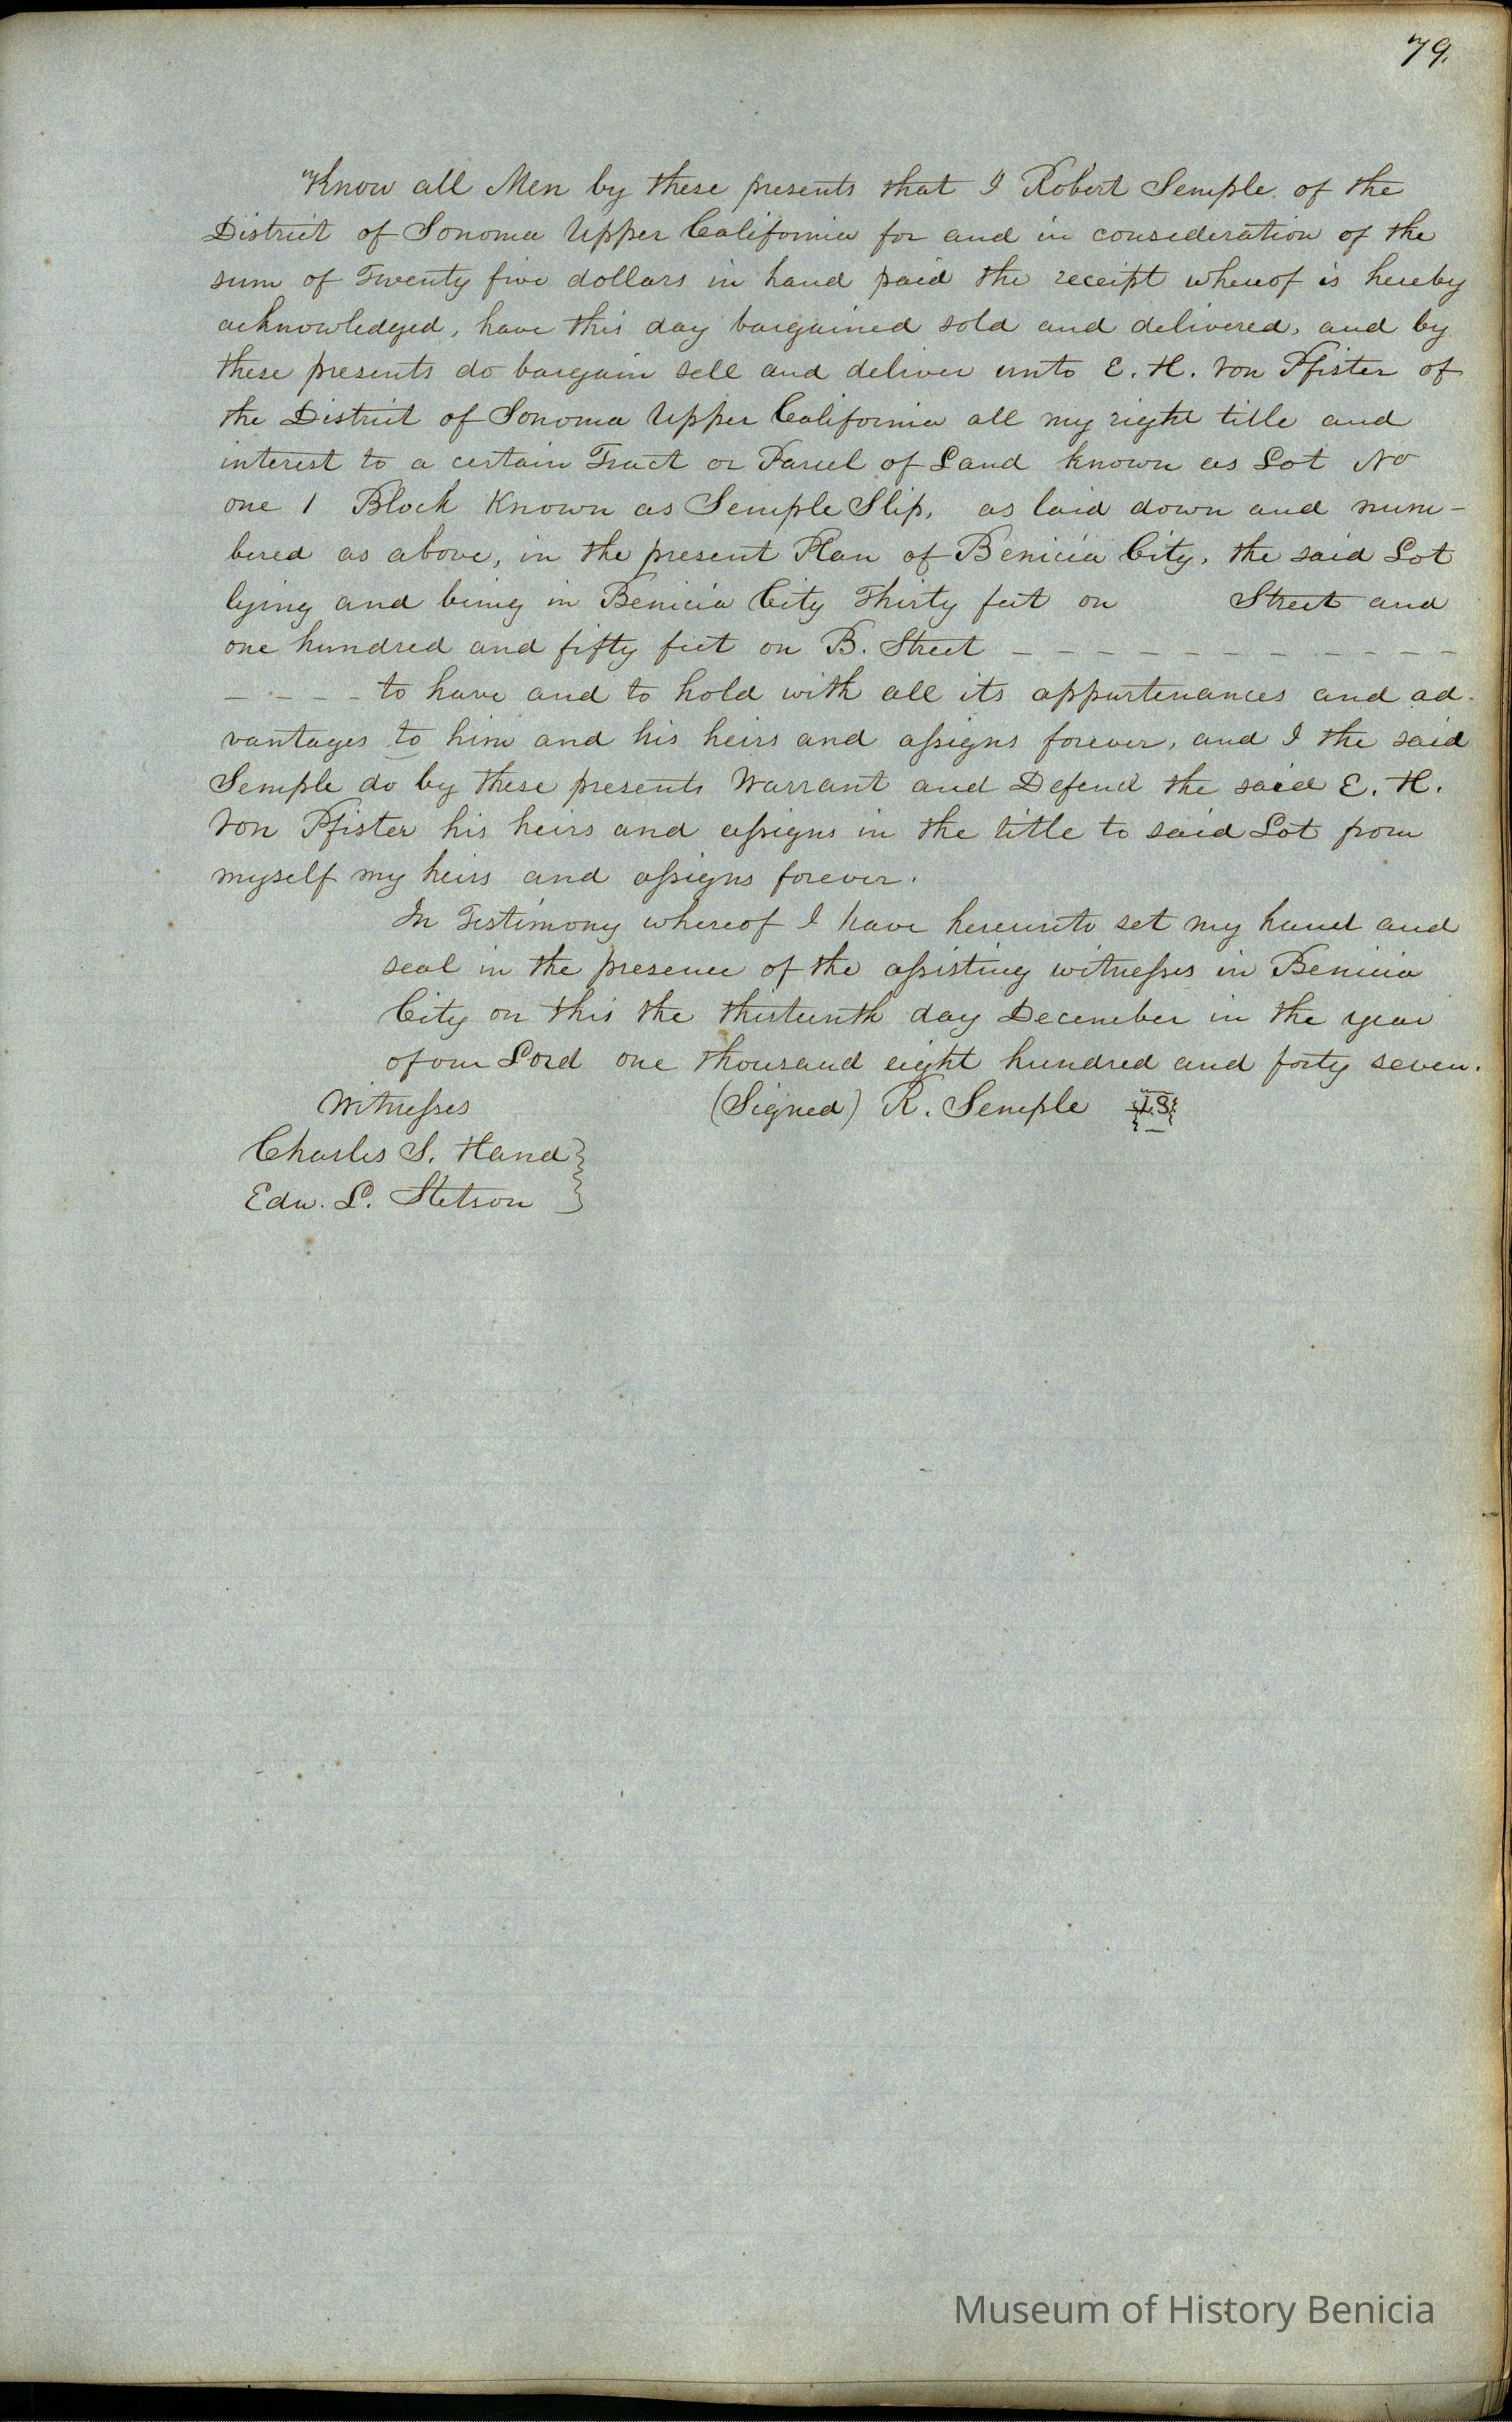 79.
Know all Men by these presents that I Robert Semple of the
District of Sonoma Upper California for and in consideration of the
sum of Twenty five dollars in hand paid the receipt whereof is hereby
acknowledged, have this day bargained sold and delivered, and by
these presents do bargain sell and deliver unto E. H. Von Pfister of
the District of Sonoma Upper California all my right title and
interest to a certain Tract or Parcel of Land known as Lot No
one 1 Block Known as Semple Slip, as laid down and num-
bered as above, in the present Plan of Benicia City, the said Lot
lying and being in Benicia City Thirty feet on Street and
one hundred and fifty feet on B. Street - - - - - - - - - - -
- - - - to have and to hold with all its appurtenances and ad-
vantages to him and his heirs and assigns forever, and I the said
Semple do by these presents Warrant and Defend the said E. H.
Von Pfister his heirs and assigns in the title to said Lot from
myself my heirs and assigns forever.
In Testimony whereof I have hereunto set my hand and
seal in the presence of the assisting witnesses in Benicia
City on this the thirteenth day December in the year
of our Lord one thousand eight hundred and forty seven.
Witnesses (Signed) R. Semple {L.S}
Charles S. Hand }
Edw. L. Stetson }
Museum of History Benicia